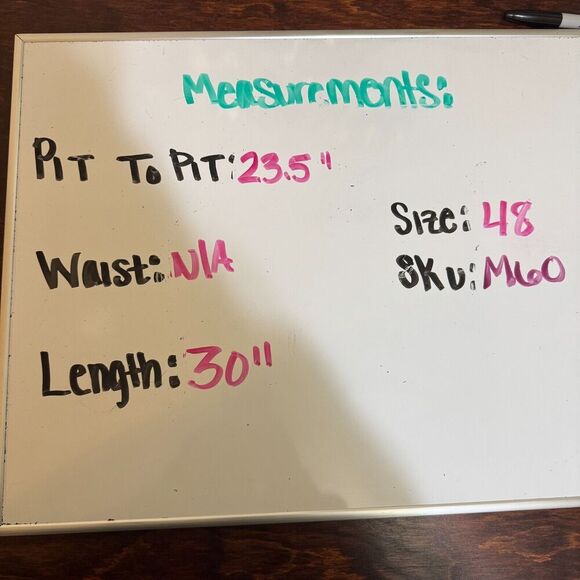 Measurements:
PIT To PIT: 23.5"
Size: 48
Waist: N/A
SKU: M60
Length: 30"